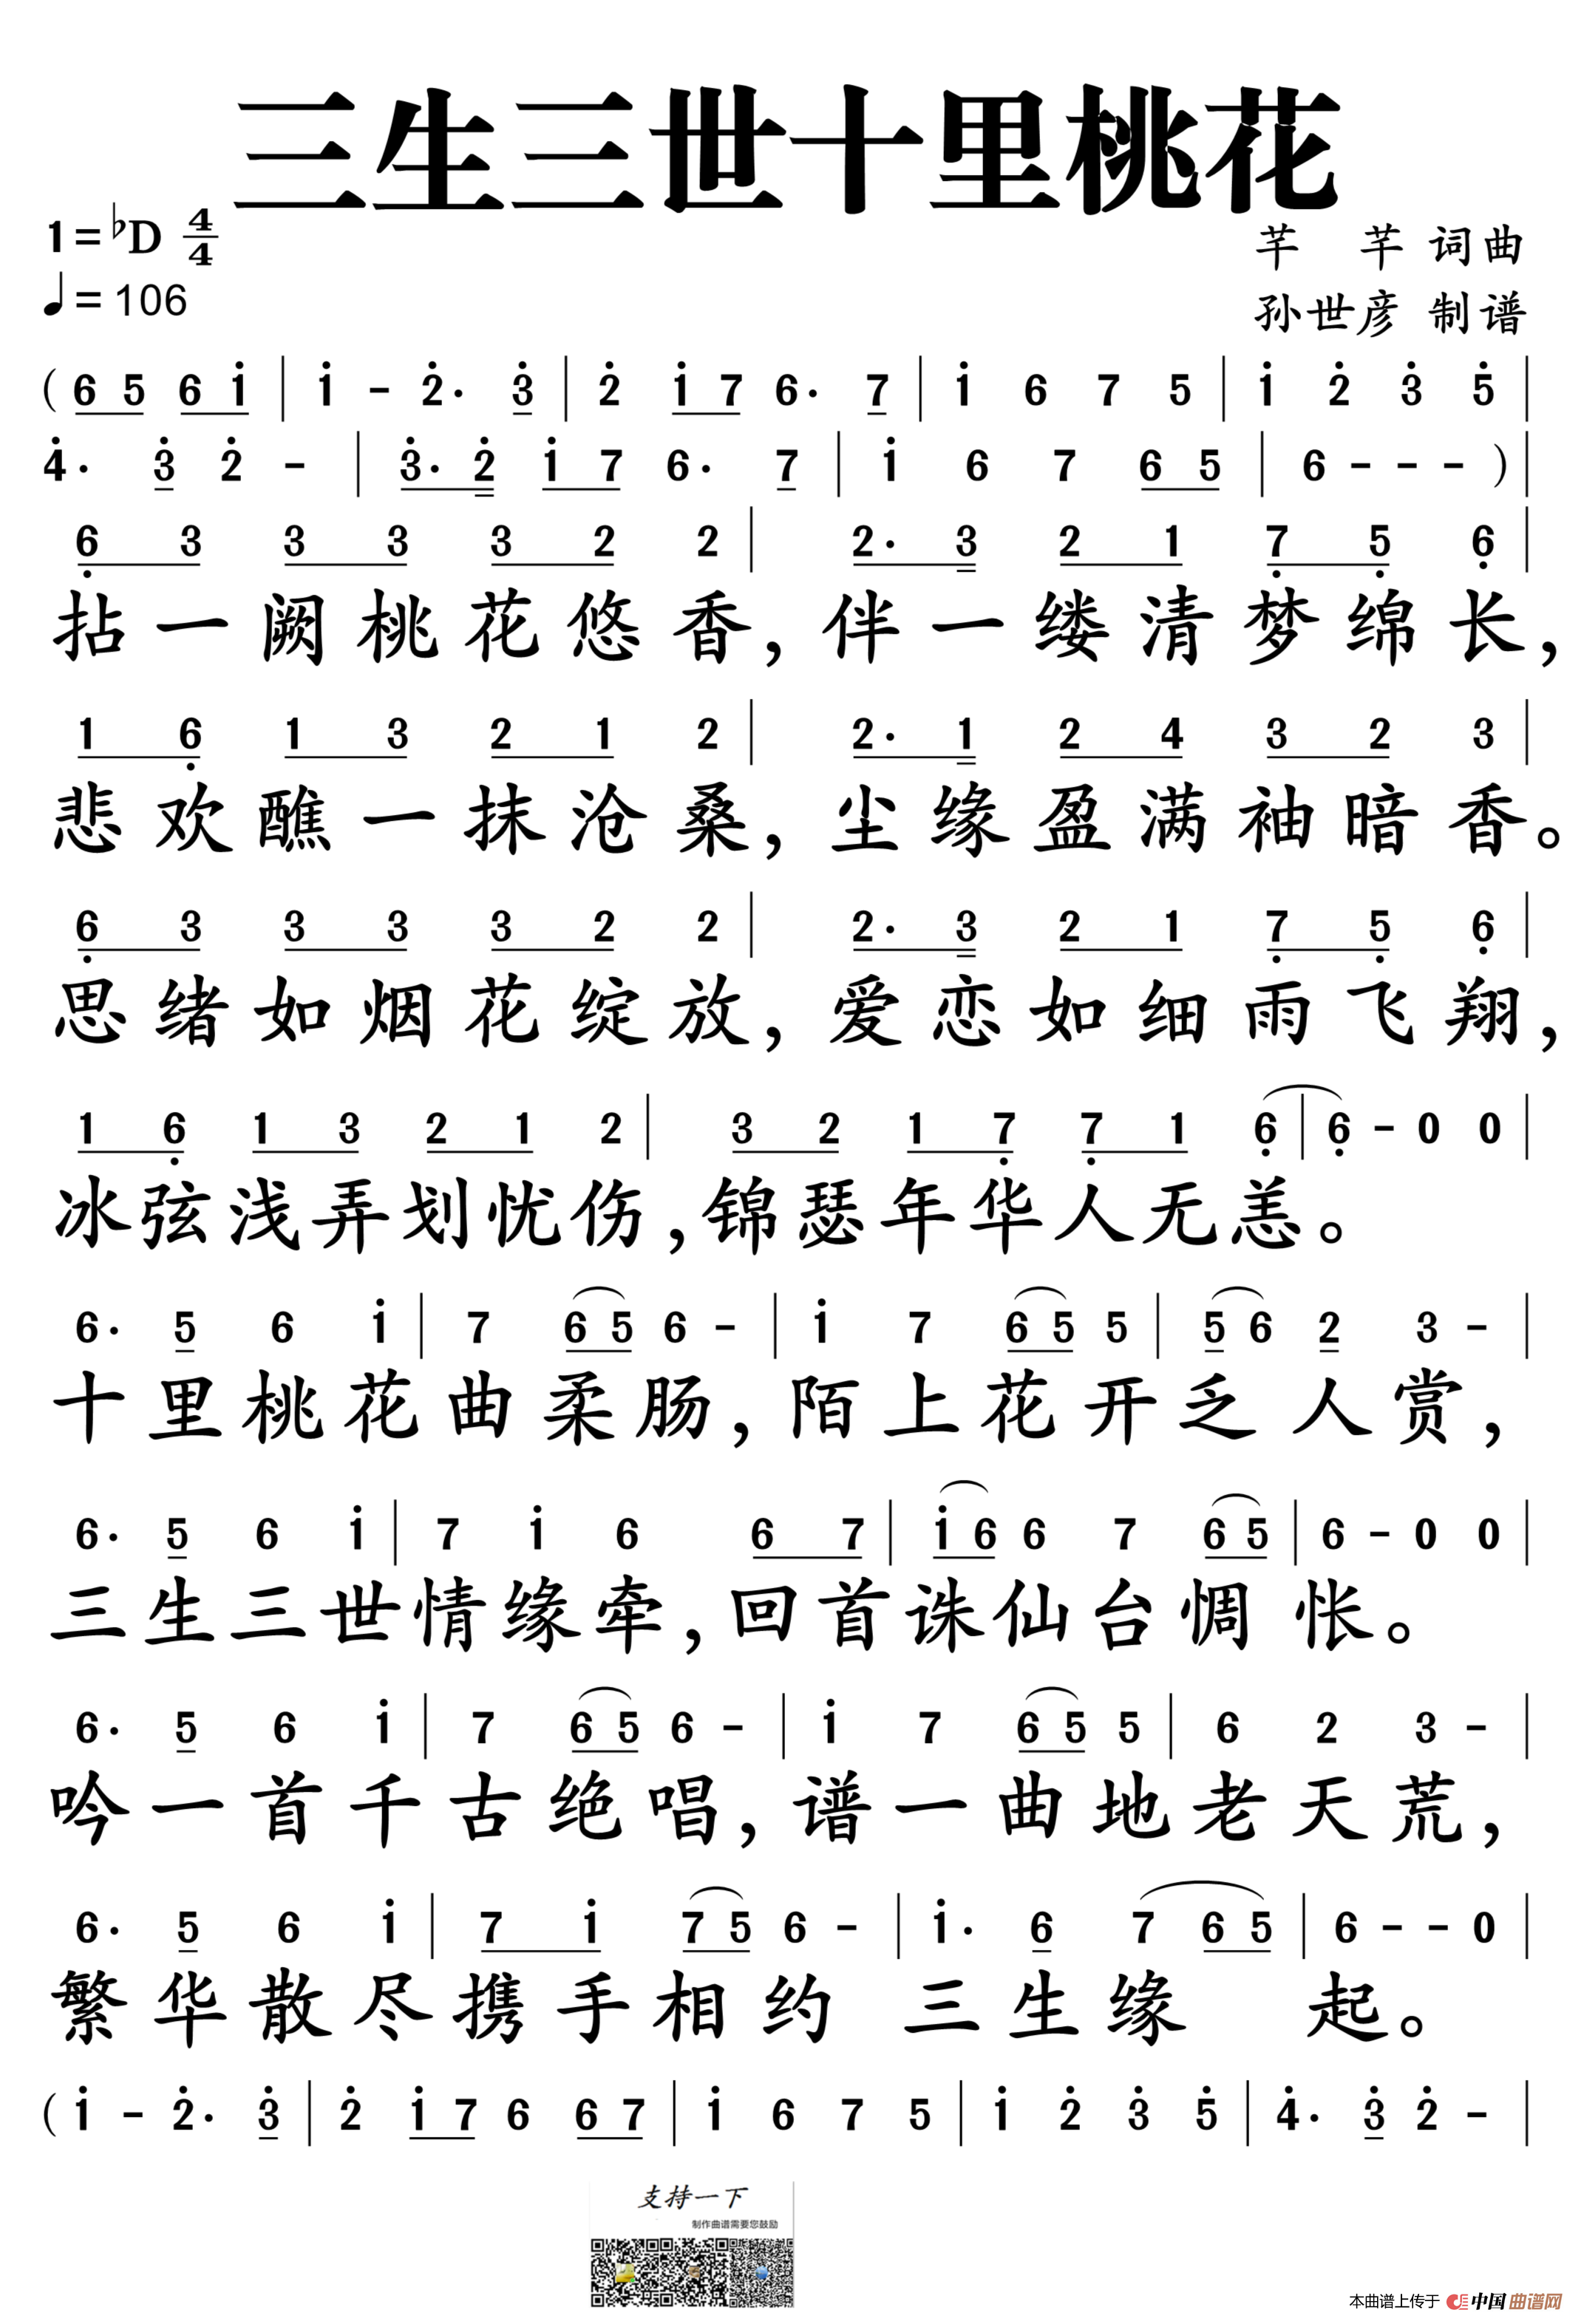 三生三世十里桃花
1=♭D 4/4
芊 芊 词曲
♩= 106
孙世彦 制谱
( 6 5 6 i̇ | i̇ - 2̇· 3̇ | 2̇ i̇ 7 6· 7 | i̇ 6 7 5 | i̇ 2̇ 3̇ 5̇ |
4̇· 3̇ 2̇ - | 3̇· 2̇ i̇ 7 6· 7 | i̇ 6 7 6 5 | 6 - - - ) |
6̣ 3 3 3 3 2 2 | 2· 3 2 1 7̣ 5̣ 6̣ |
拈一阙桃花悠香，伴一缕清梦绵长，
1 6̣ 1 3 2 1 2 | 2· 1 2 4 3 2 3 |
悲欢醮一抹沧桑，尘缘盈满袖暗香。
6̣ 3 3 3 3 2 2 | 2· 3 2 1 7̣ 5̣ 6̣ |
思绪如烟花绽放，爱恋如细雨飞翔，
1 6̣ 1 3 2 1 2 | 3 2 1 7̣ 7̣ 1 6̣ | 6̣ - 0 0 |
冰弦浅弄划忧伤，锦瑟年华人无恙。
6· 5 6 i̇ | 7 6 5 6 - | i̇ 7 6 5 5 | 5 6 2 3 - |
十里桃花曲柔肠，陌上花开乏人赏，
6· 5 6 i̇ | 7 i̇ 6 6 7 | i̇ 6 6 7 6 5 | 6 - 0 0 |
三生三世情缘牵，回首诛仙台惆怅。
6· 5 6 i̇ | 7 6 5 6 - | i̇ 7 6 5 5 | 6 2 3 - |
吟一首千古绝唱，谱一曲地老天荒，
6· 5 6 i̇ | 7 i̇ 7 5 6 - | i̇· 6 7 6 5 | 6 - - 0 |
繁华散尽携手相约 三生缘 起。
( i̇ - 2̇· 3̇ | 2̇ i̇ 7 6 6 7 | i̇ 6 7 5 | i̇ 2̇ 3̇ 5̇ | 4̇· 3̇ 2̇ - |
支持一下
制作曲谱需要您鼓励
本曲谱上传于 中国曲谱网